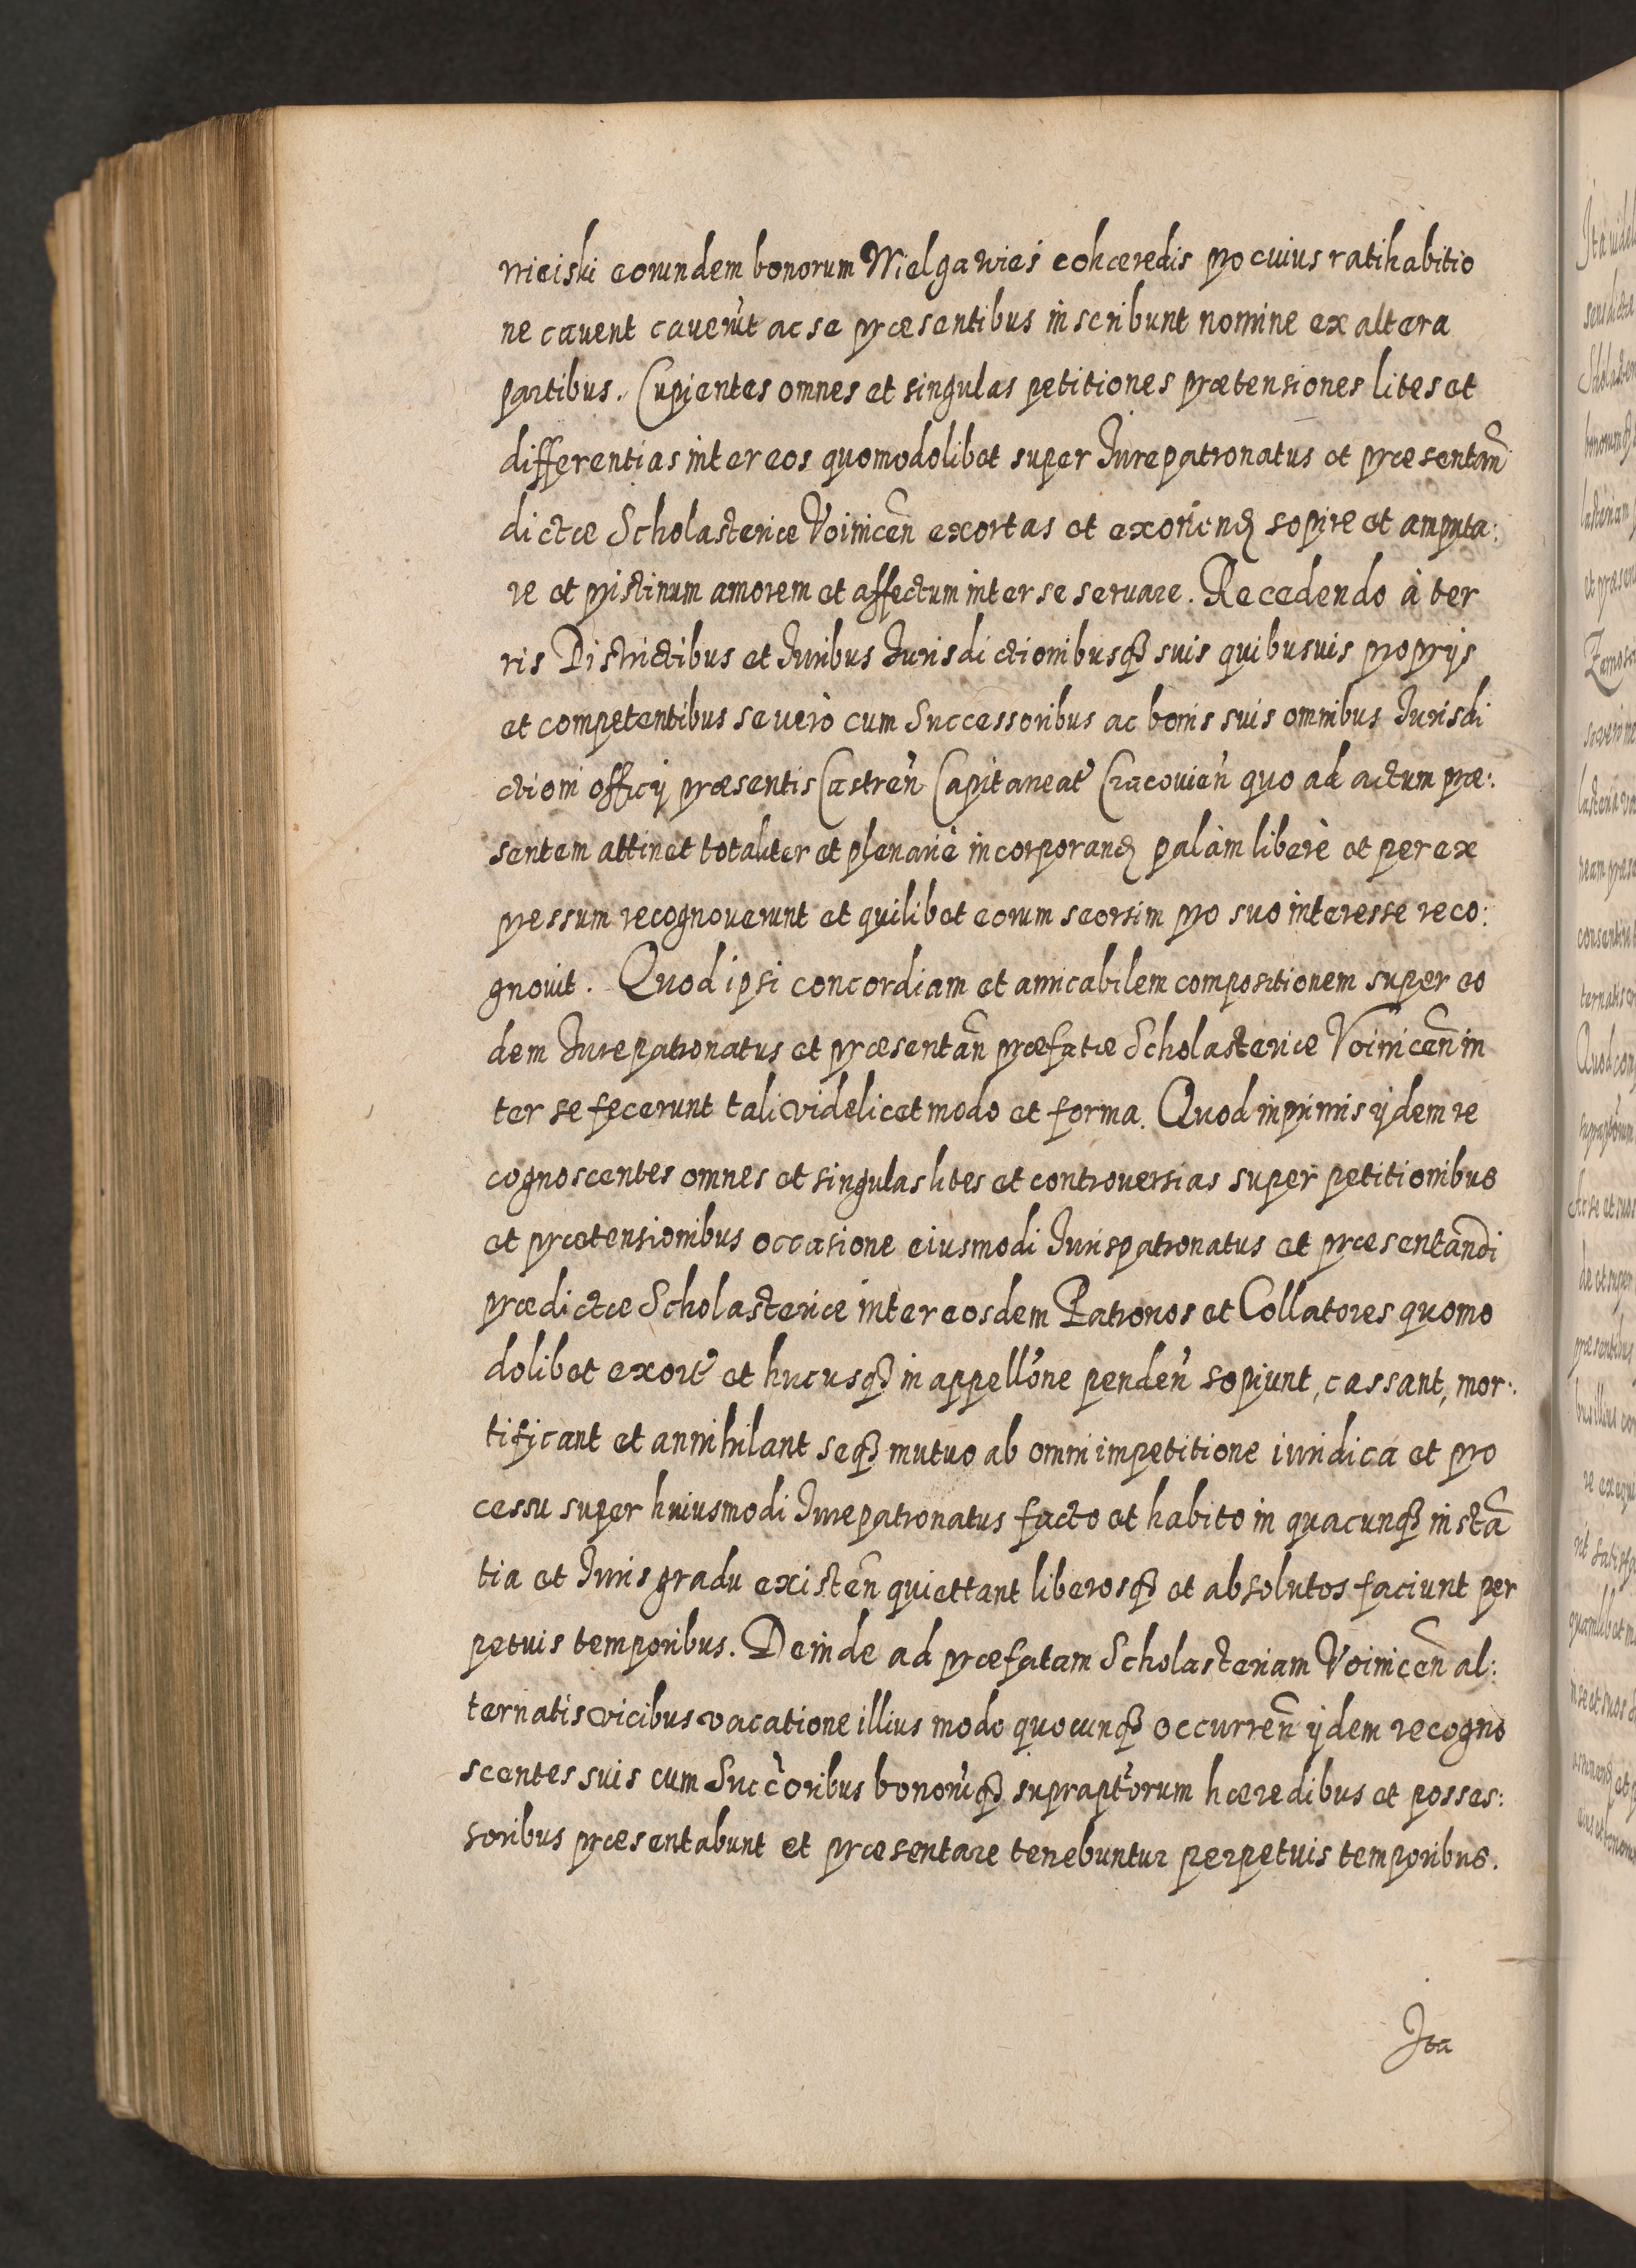 wieiski eorundem bonorum Mielgawies cohæredis pro cuius ratihabitio
ne cavent caverūt ac se præsentibus inscribunt nomine ex altera
partibus. Cupientes omnes et singulas petitiones prætensiones lites et
differentias inter eos quomodolibet super Iurepatronatus et præsentañ
dictæ Scholasteriæ Voiniceñ exortas et exorienđ sopire et amputa:
re et pristinum amorem et affectum inter se servare. Recedendo à ter
ris Districtibus et Iuribus Iurisdictionibusq₃ suis quibusuis proprijs
et competentibus se verò cum Successoribus ac bonis suis omnibus Iurisdi
ctioni officij præsentis Castreñ Capitaneat' Cracovieñ quo ad actum præ:
sentem attinet totaliter et plenariè incorporanđ palàm liberè et per ex
pressum recognoverunt et quilibet eorum seorsim pro suo interesse reco:
gnovit. Quod ipsi concordiam et amicabilem compositionem super eo
dem Iurepatronatus et præsentañ præfatæ Scholasteriæ Voiniceñ in
ter se fecerunt tali videlicet modo et forma. Quod inprimis ijdem re
cognoscentes omnes et singulas lites et controversias super petitionibus
et prætensionibus occasione eiusmodi Iurispatronatus et præsentandi
prædictæ Scholasteriæ inter eosdem Patronos et Collatores quomo
dolibet exort' et hucusq₃ in appell'one penden' sopiunt, cassant, mor:
tificant et annihilant seq₃ mutuo ab omni impetitione iuridica et pro
cessu super huiusmodi Iurepatronatus facto et habito in quacunq₃ instā
tia et Iuris gradu existeñ quiettant liberosq₃ et absolutos faciunt per
petuis temporibus. Deinde ad præfatam Scholasteriam Voiniceñ al:
ternatis vicibus vacatione illius modo quocunq₃ occurreñ ijdem recogno
scentes suis cum Succ'oribus bonorūq₃ suprapt'orum hæredibus et posses:
soribus præsentabunt et præsentare tenebuntur perpetuis temporibus.
Ita